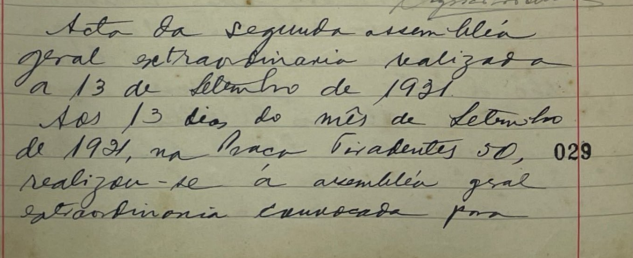 Acta da segunda assembléa
geral extraordinaria realizada
a 13 de Setembro de 1921
Aos 13 dias do mês de Setembro
de 1921, na Praça Tiradentes 50, 029
realizou-se á assembléa geral
extraordinaria convocada para